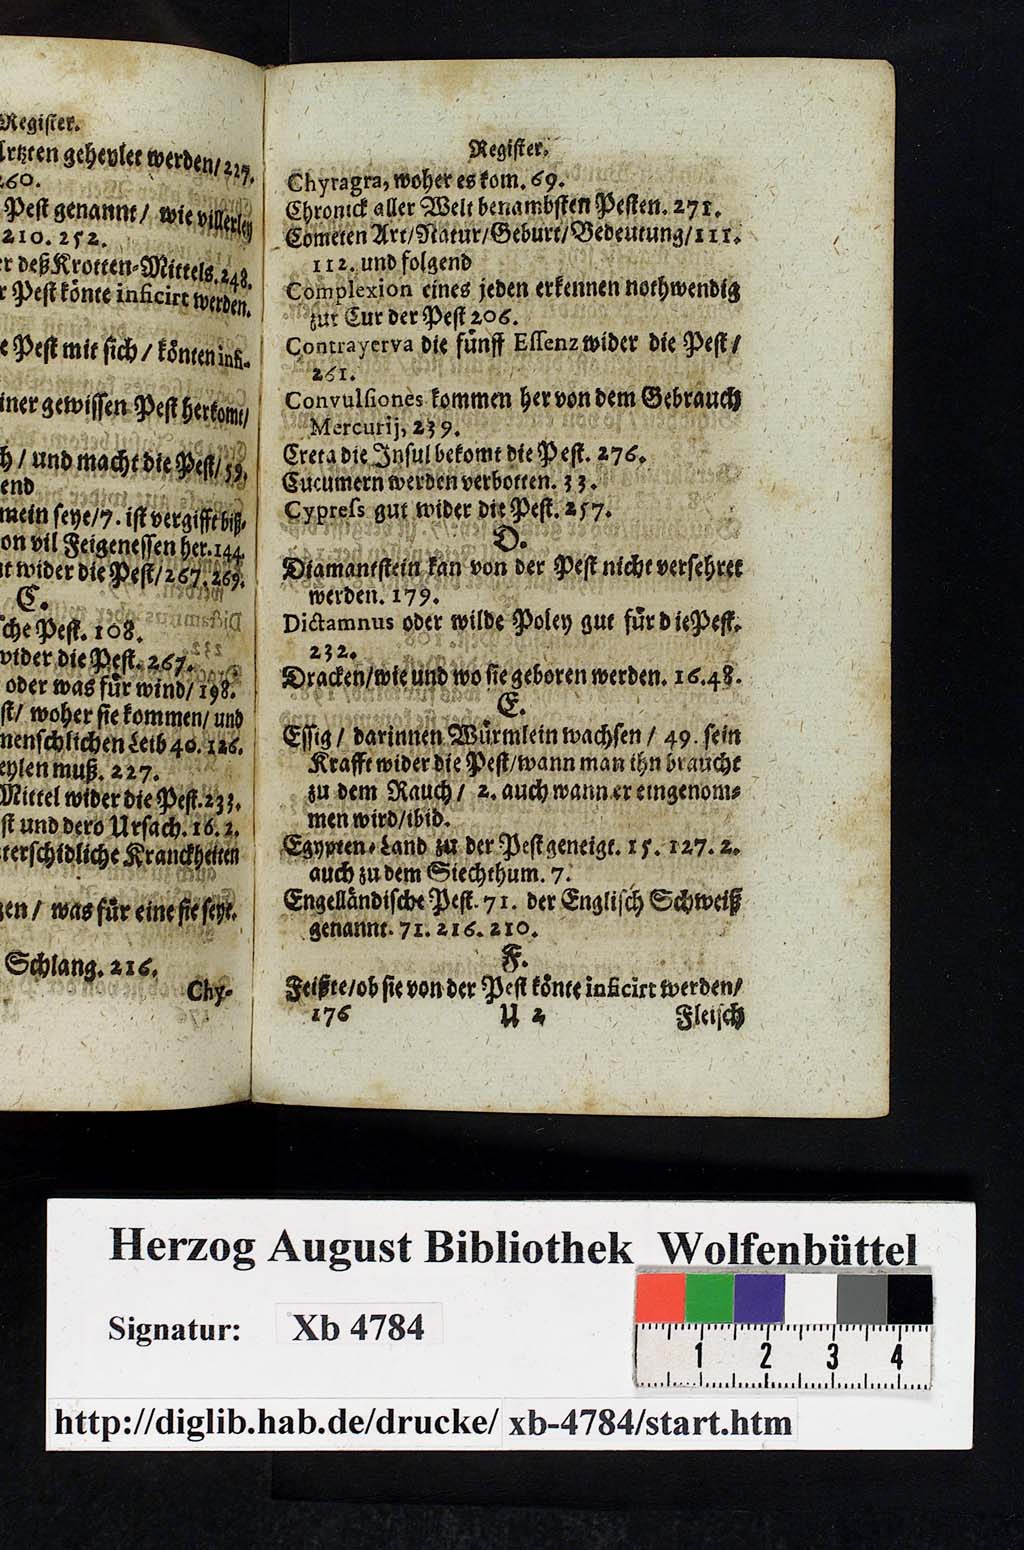 Register.
geheylet werden/ 227.
260.
Pest genannt/ wie villerley
210. 252.
deß Krotten-Mittels. 248.
Pest könte inficirt werden.
Pest mit sich / könten infi-
einer gewissen Pest herkomt/
/ und macht die Pest/ 59.
end
mein seye/7. ist vergifft biß-
von vil Feigenessen her. 144.
wider die Pest/267. 269.
C.
sche Pest. 108.
wider die Pest. 267.
oder was für wind/ 198.
woher sie kommen/ und
menschlichen Leib 40. 126.
heylen muß. 227.
Mittel wider die Pest. 233.
und dero Ursach. 16. 2.
unterschidliche Kranckheiten
was für eine sie seye.
Schlang. 216.
Chy-
Register.
Chyragra, woher es kom. 69.
Chronick aller Welt benambsten Pesten. 271.
Cometen Art/Natur/Geburt/Bedeutung/111.
112. und folgend
Complexion eines jeden erkennen nothwendig
zur Cur der Pest 206.
Contrayerva die fünff Essenz wider die Pest/
261.
Convulsiones kommen her von dem Gebrauch
Mercurij, 239.
Creta die Insul bekomt die Pest. 276.
Cucumern werden verbotten. 33.
Cypress gut wider die Pest. 257.
D.
Diamantstein kan von der Pest nicht versehret
werden. 179.
Dictamnus oder wilde Poley gut für die Pest.
232.
Dracken/wie und wo sie geboren werden. 16.48.
E.
Essig / darinnen Würmlein wachsen / 49. sein
Krafft wider die Pest/wann man ihn braucht
zu dem Rauch / 2. auch wann er eingenom-
men wird/ibid.
Egypten-Land zu der Pest geneigt. 15. 127. 2.
auch zu dem Siechthum. 7.
Engelländische Pest. 71. der Englisch Schweiß
genannt. 71. 216. 210.
F.
Feißte/ob sie von der Pest könte inficirt werden/
176 U 2 Fleisch
Herzog August Bibliothek Wolfenbüttel
Signatur: Xb 4784
1 2 3 4
http://diglib.hab.de/drucke/ xb-4784/start.htm